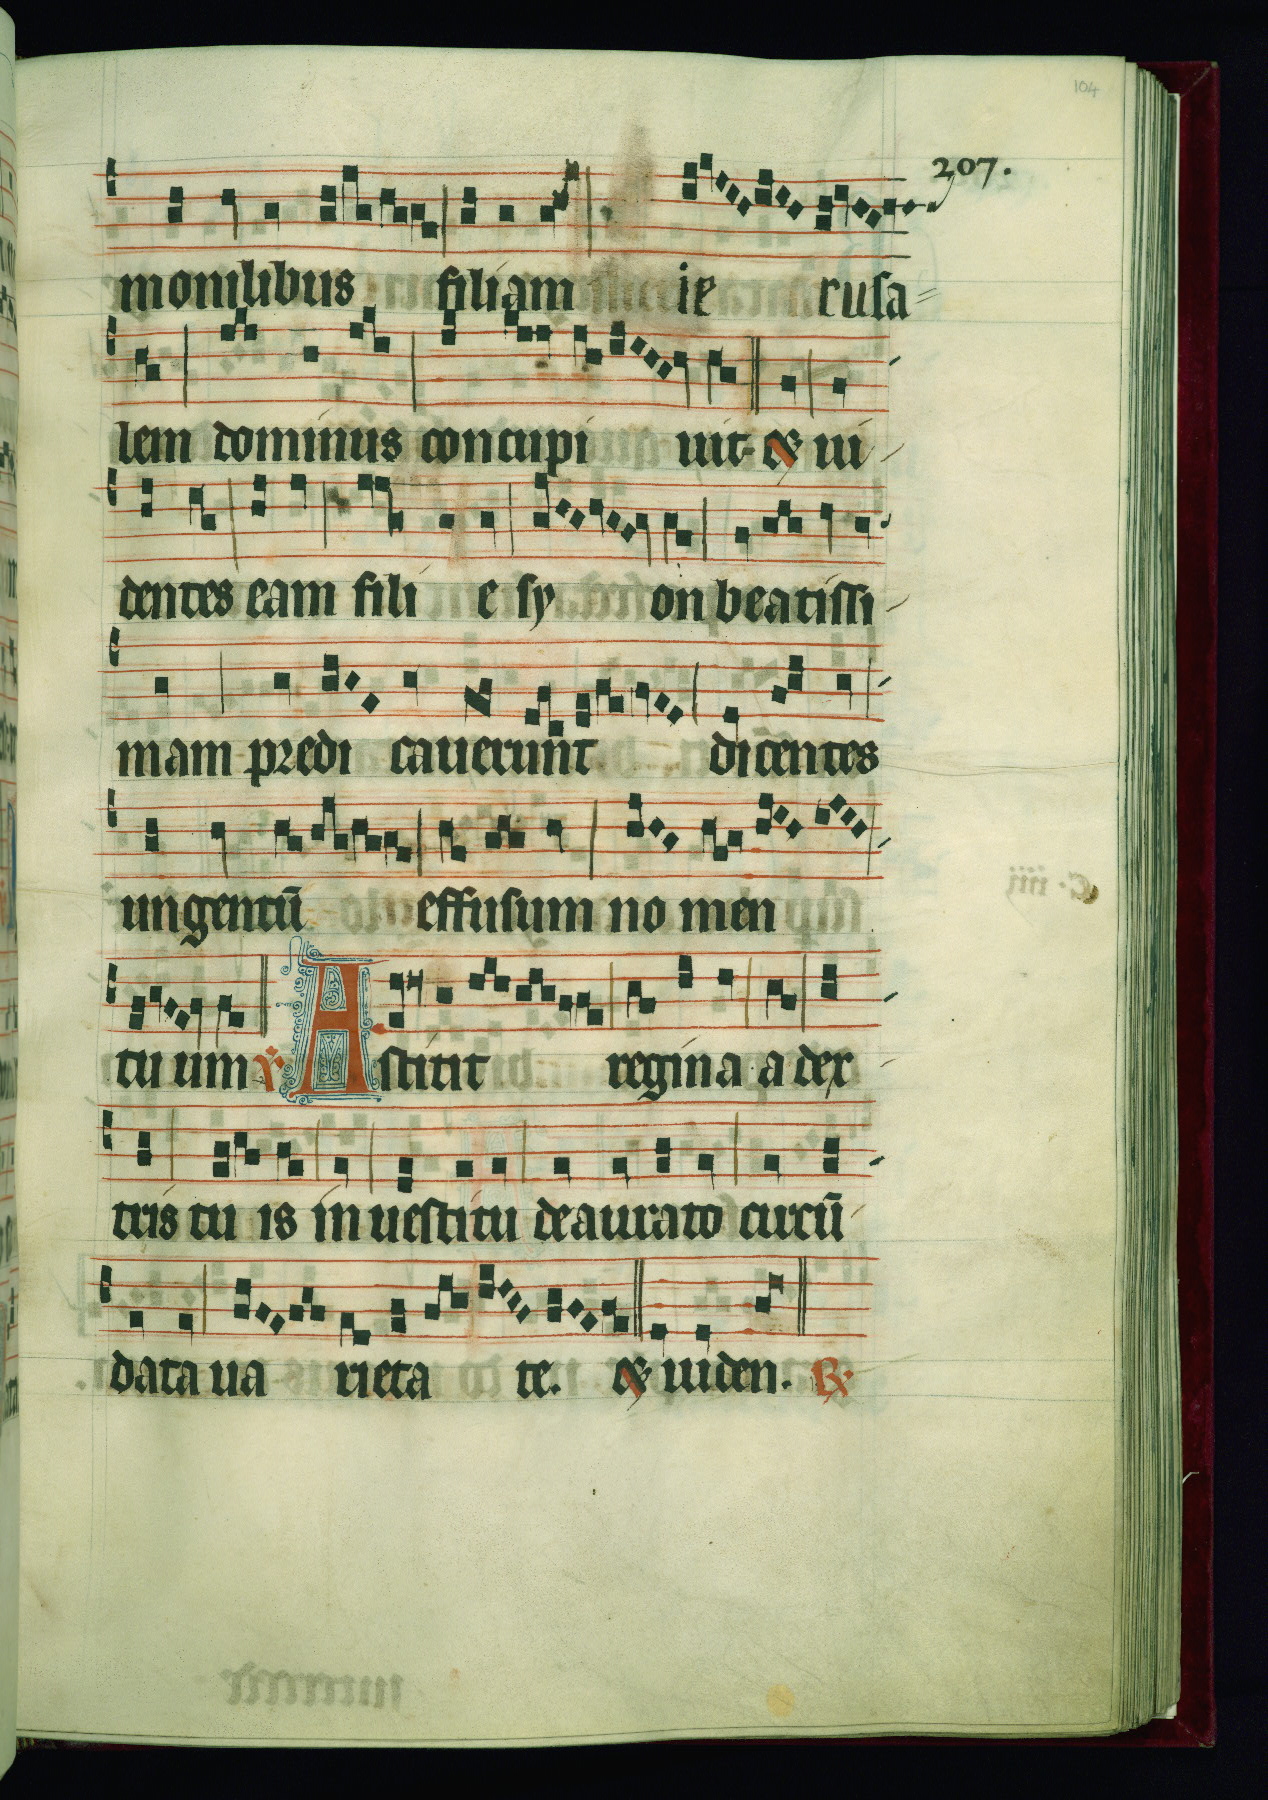 104
207.
monilibus filiam ie rusa
lem dominus concupi uit. & ui
dentes eam fili e sy on beatissi
mam predi cauerunt dicentes
ungentū effusum no men
tu um ℣ Astitit regina a dex
tris tu is in uestitu deaurato circū
data ua rieta te. & uiden. ℟